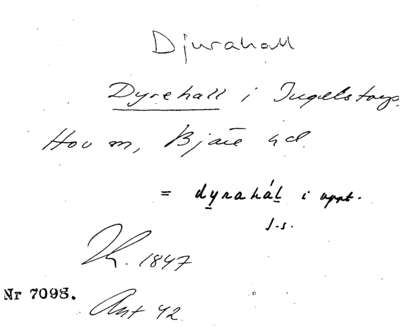 Djurahall
Dyrehall i Ingelstorp,
Hov sn, Bjäre hd.
= dyrahál i uppt.
s.s.
1847
Nr 7098.
Ant 42